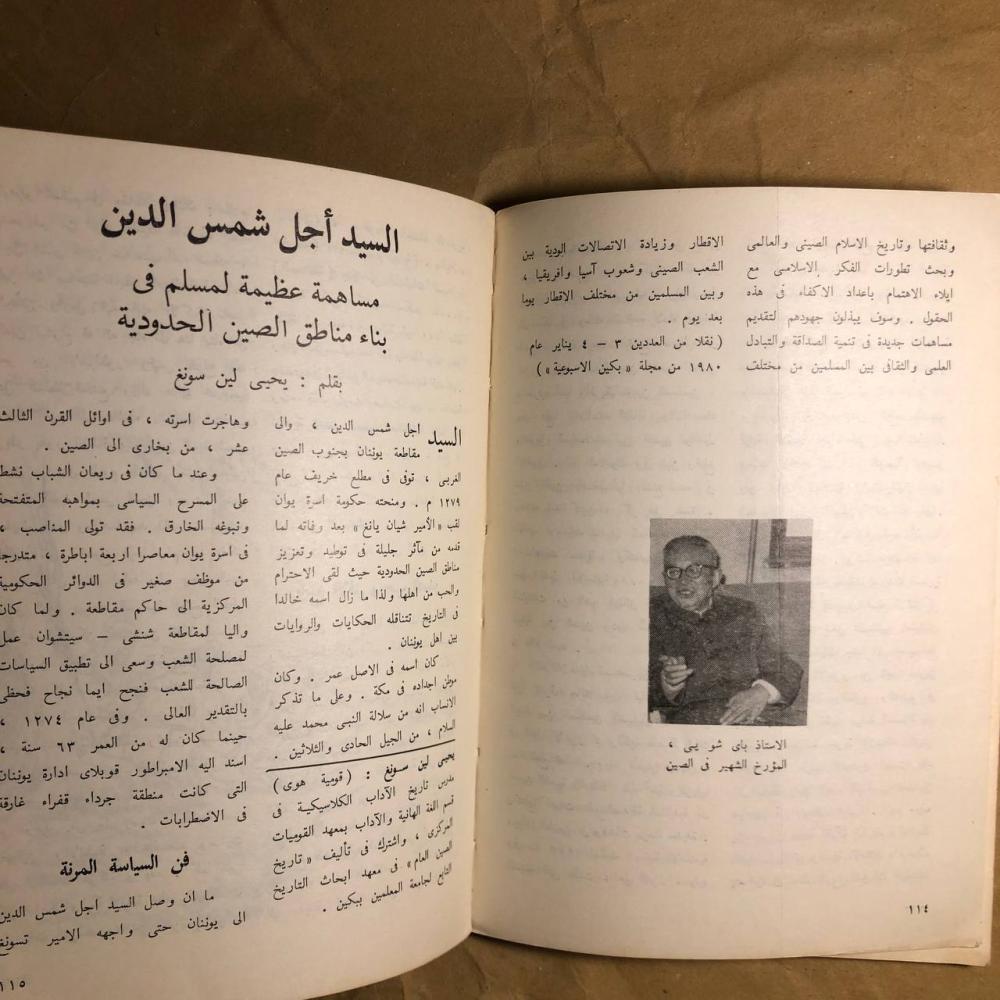 وثقافتها وتاريخ الاسلام الصينى والعالمى
وبحث تطورات الفكر الاسلامى مع
ايلاء الاهتمام باعداد الاكفاء فى هذه
الحقول . وسوف يبذلون جهودهم لتقديم
مساهمات جديدة فى تنمية الصداقة والتبادل
العلمى والثقافى بين المسلمين من مختلف
الاقطار وزيادة الاتصالات الودية بين
الشعب الصينى وشعوب آسيا وافريقيا ،
وبين المسلمين من مختلف الاقطار يوما
بعد يوم .
(نقلا من العددين ٣ – ٤ يناير عام
١٩٨٠ من مجلة «بكين الاسبوعية»)
الاستاذ باى شو يى ،
المؤرخ الشهير فى الصين
١١٤
السيد أجل شمس الدين
مساهمة عظيمة لمسلم فى
بناء مناطق الصين الحدودية
بقلم : يحيى لين سونغ
السيد اجل شمس الدين ، والى
مقاطعة يوننان بجنوب الصين
الغربى ، توفى فى مطلع خريف عام
١٢٧٩ م . ومنحته حكومة اسرة يوان
لقب «الأمير شيان يانغ» بعد وفاته لما
قدمه من مآثر جليلة فى توطيد وتعزيز
مناطق الصين الحدودية حيث لقى الاحترام
والحب من اهلها ولذا ما زال اسمه خالدا
فى التاريخ تتناقله الحكايات والروايات
بين اهل يوننان .
كان اسمه فى الاصل عمر . وكان
موطن اجداده فى مكة . وعلى ما تذكر
الانساب انه من سلالة النبى محمد عليه
السلام ، من الجيل الحادى والثلاثين .
يحيى لين سونغ : (قومية هوى)
مدرس تاريخ الآداب الكلاسيكية فى
قسم اللغة الهانية والآداب بمعهد القوميات
المركزى ، واشترك فى تأليف «تاريخ
الصين العام» فى معهد ابحاث التاريخ
التابع لجامعة المعلمين ببكين .
وهاجرت اسرته ، فى اوائل القرن الثالث
عشر ، من بخارى الى الصين .
وعند ما كان فى ريعان الشباب نشط
على المسرح السياسى بمواهبه المتفتحة
ونبوغه الخارق . فقد تولى المناصب ،
فى اسرة يوان معاصرا اربعة اباطرة ، متدرجا
من موظف صغير فى الدوائر الحكومية
المركزية الى حاكم مقاطعة . ولما كان
واليا لمقاطعة شنشى – سيتشوان عمل
لمصلحة الشعب وسعى الى تطبيق السياسات
الصالحة للشعب فنجح ايما نجاح فحظى
بالتقدير العالى . وفى عام ١٢٧٤ ،
حينما كان له من العمر ٦٣ سنة ،
اسند اليه الامبراطور قوبلاى ادارة يوننان
التى كانت منطقة جرداء قفراء غارقة
فى الاضطرابات .
فن السياسة المرنة
ما ان وصل السيد اجل شمس الدين
الى يوننان حتى واجهه الامير تسونغ
١١٥